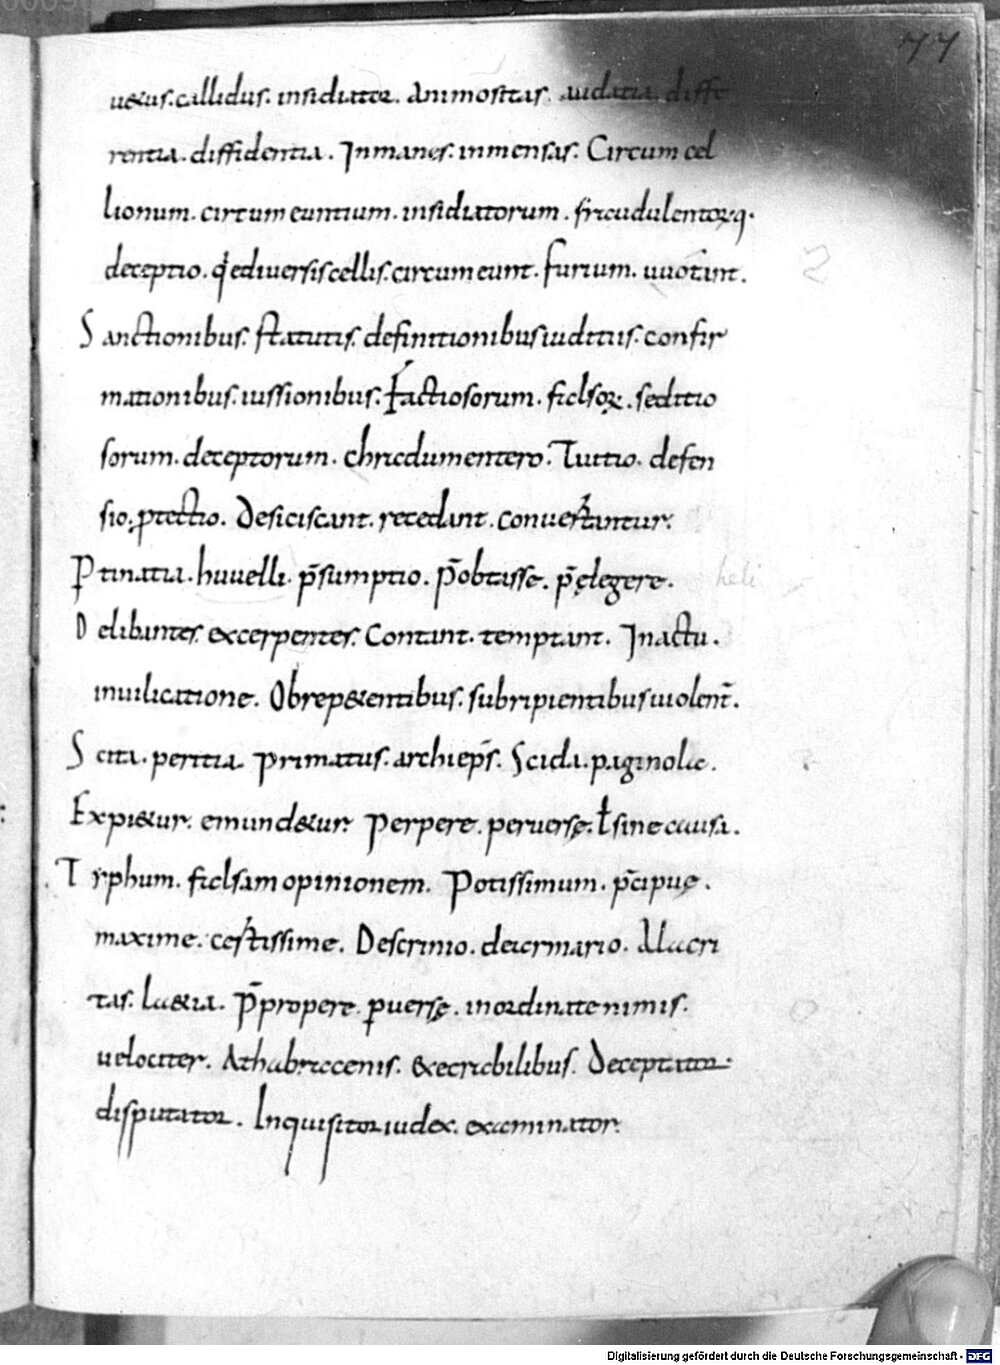 77
uetus. callidus. insidiator. Animositas. audatia. diffe
rentia. diffidentia. Inmanes. inmensas. Circumcel
lionum. circumeuntium. insidiatorum. fraudulentorūq.
deceptio. q̄ediuersiscellis. circumeunt. furium.
Sanctionibus. statutis. definitionibus iuditiis. confir
mationibus. iussionibus. Factiosorum. falsoꝝ. seditio
sorum. deceptorum. Tuitio. defen
sio. ꝓtectio. Desiciscant. recedant. conuertantur.
Ptinatia. huuelli. p̄sumptio. p̄obtasse. p̄ęlegere.
heli
Delibantes. excerpentes. Contant. temptant. Inactu.
inuilicatione. Obrepetentibus. subripientibus uiolent̄.
Scita. peritia. primatus. archiep̄s. Scida. paginola.
Expietur. emundetur. perpere. peruersę. ł sine causa.
Typhum. falsam opinionem. Potissimum. p̄cipuę.
maxime. certissime. Descrinio. dearmario. Alacri
tas. laetia. p̄propere. ꝑuersę. inordinate nimis.
uelociter. Athabriccenis. &ecrabilibus. Deceptator.
disputator. Inquisitor iudex. examinator.
Digitalisierung gefördert durch die Deutsche Forschungsgemeinschaft - DFG